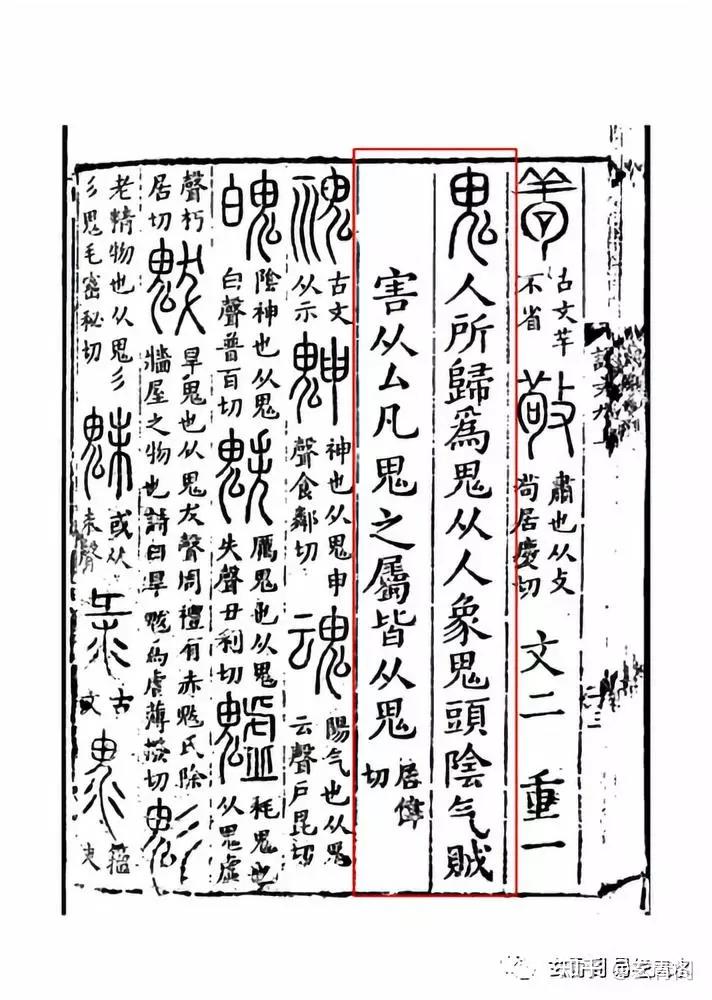 說文九上
古文
不省
敬
肅也从攴
居慶切
文二
重一
鬼人所歸爲鬼从人象鬼頭陰气賊
害从厶凡鬼之屬皆从鬼
居偉
切
䰡
古文
从示
䰠
神也从鬼申
聲食鄰切
魂
陽气也从鬼
云聲戶昆切
魄
陰神也从鬼
白聲普百切
䰡
厲鬼也从鬼
失聲丑利切
魖
耗鬼也
从鬼虛
聲朽
居切
魃
旱鬼也从鬼犮聲周禮有赤魃氏除
牆屋之物也詩曰旱魃爲虐蒲撥切
鬽
老精物也从鬼彡
彡鬼毛密祕切
魅
或从
未聲
古
文
籒
文